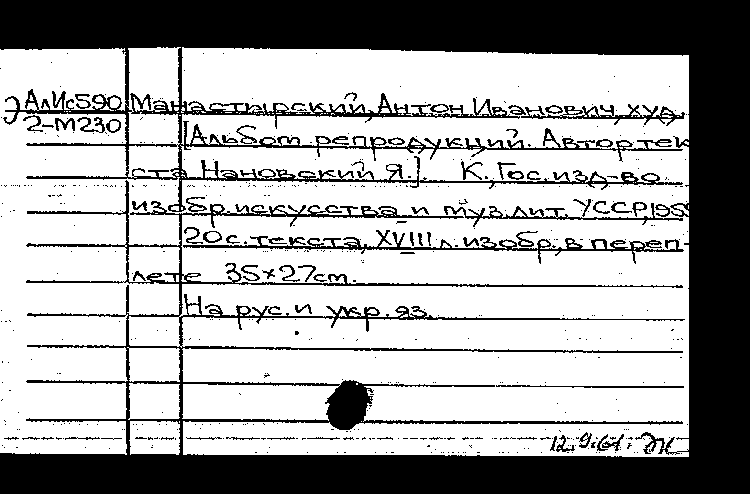 Э АлИс590 Манастырский, Антон Иванович, худ.
2-М230 [Альбом репродукций. Автор тек
ста Нановский Я.]. К., Гос. изд-во
изобр. искусства и муз. лит. УССР, 1959
20 с. текста, XVIII л. изобр., в переп-
лете 35×27cm.
На рус. и укр. яз.
12.9.61.